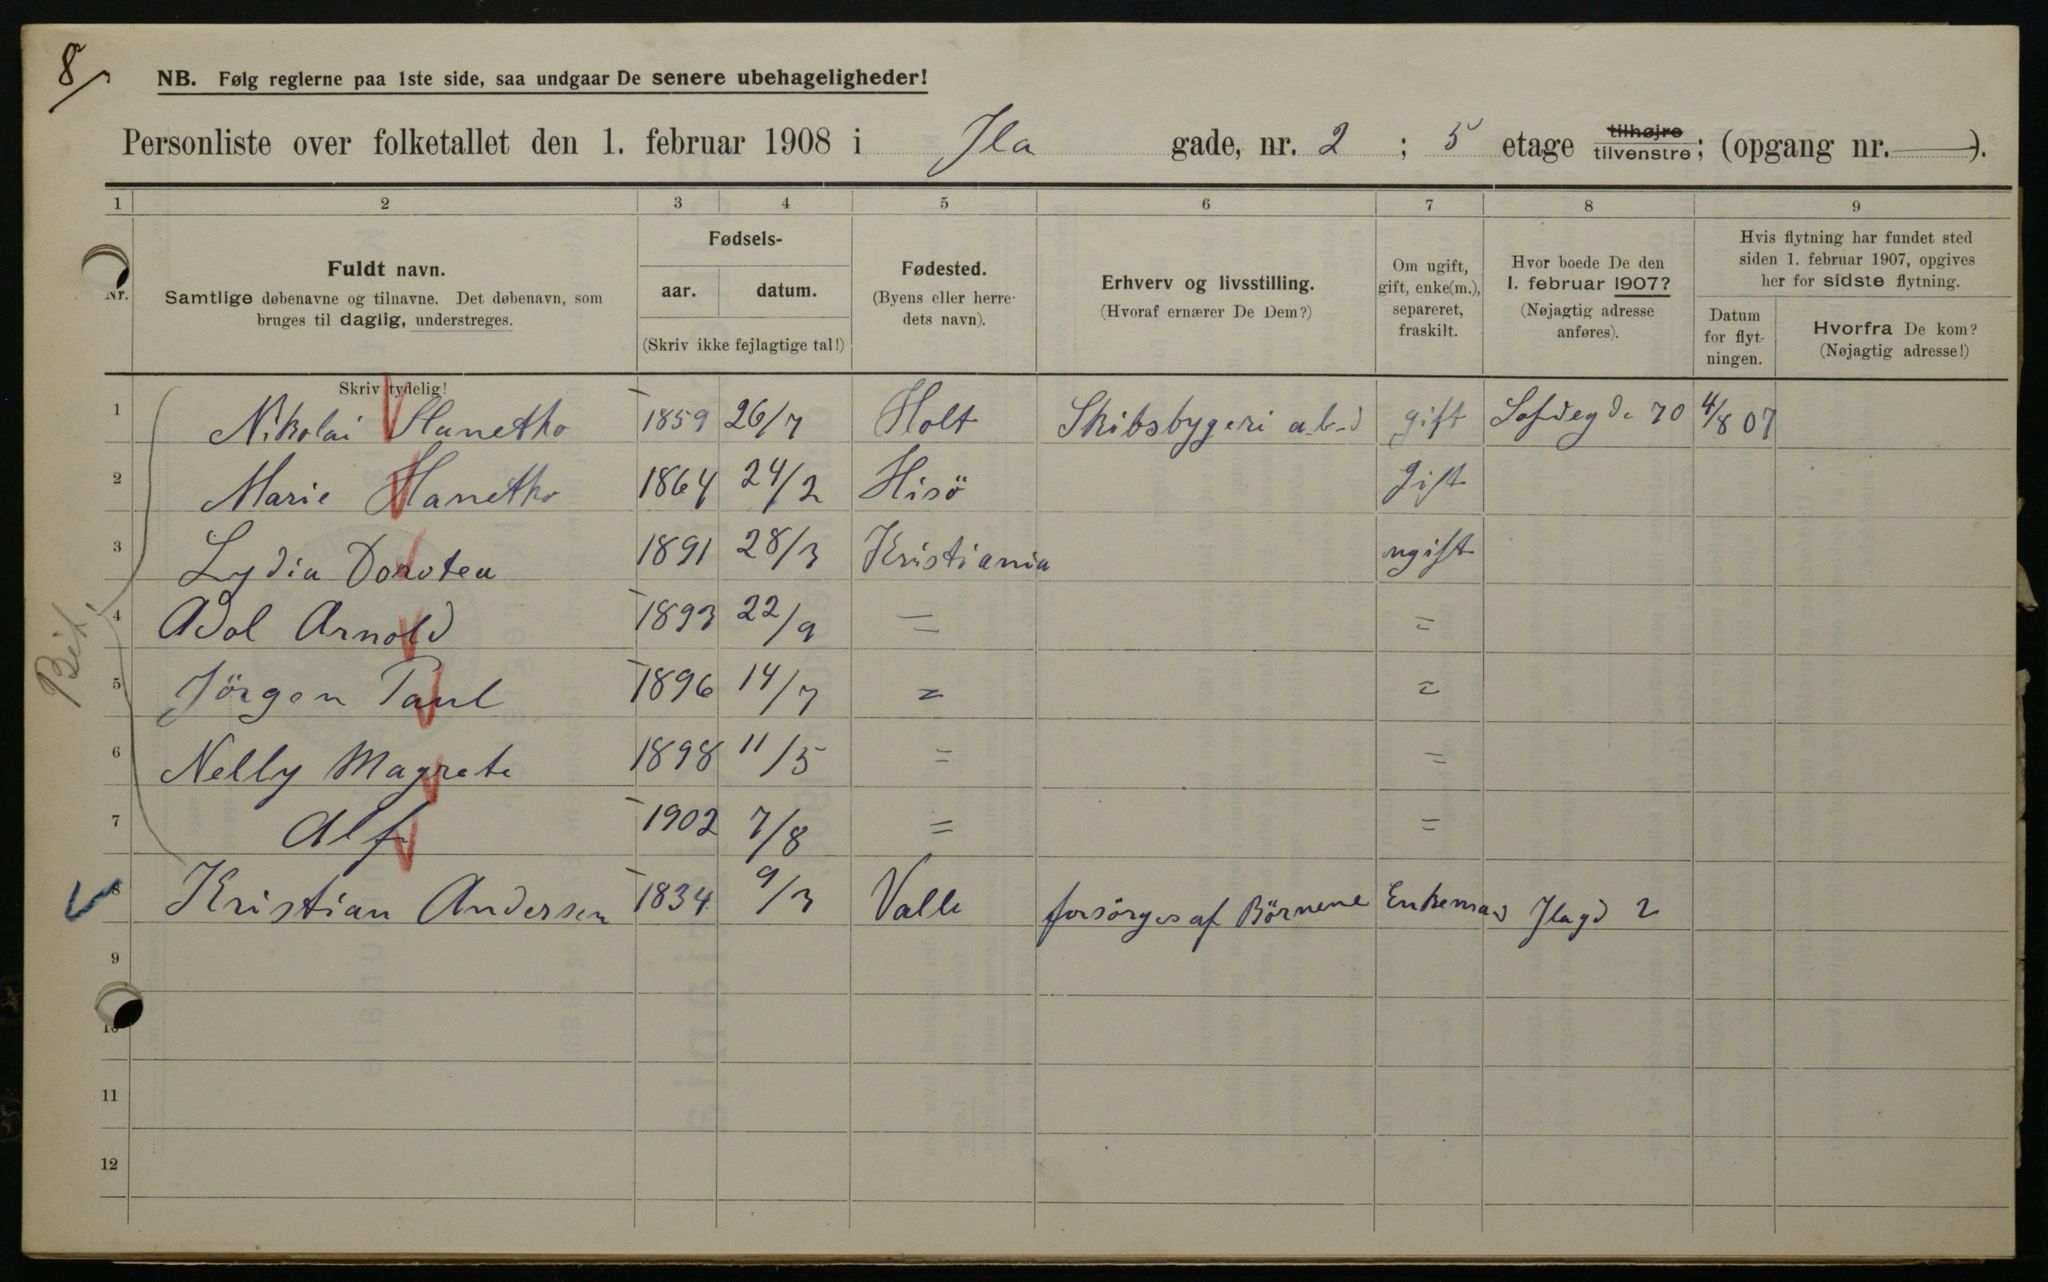 8/
NB. Følg reglerne paa 1ste side, saa undgaar De senere ubehageligheder!
Personliste over folketallet den 1. februar 1908 i Ila gade, nr. 2 ; 5 etage tilhøjre tilvenstre; (opgang nr. — ).
1 2 3 4 5 6 7 8 9
Nr.
Fuldt navn.
Samtlige døbenavne og tilnavne. Det døbenavn, som
bruges til daglig, understreges.
Skriv tydelig!
Fødsels-
aar. datum.
(Skriv ikke fejlagtige tal!)
Fødested.
(Byens eller herre-
dets navn).
Erhverv og livsstilling.
(Hvoraf ernærer De Dem?)
Om ugift,
gift, enke(m.),
separeret,
fraskilt.
Hvor boede De den
1. februar 1907?
(Nøjagtig adresse
anføres).
Hvis flytning har fundet sted
siden 1. februar 1907, opgives
her for sidste flytning.
Datum
for flyt-
ningen.
Hvorfra De kom?
(Nøjagtig adresse!)
1 Nikolai Hanetho 1859 26/7 Holt Skibsbygeri gift 70 4/8 07
2 Marie Hanetho 1864 24/2 Hisö Gift
3 Lydia Dorotea 1891 28/3 Kristiania ugift
4 Adol Arnold 1893 22/9 = =
5 Jörgen Paul 1896 14/7 = =
6 Nelly Magrete 1898 11/5 = =
7 Alf 1902 7/8 = =
8 Kristian Andersen 1834 9/3 Valle forsörges af Börnene Enkeman Ilagd 2
9
10
11
12